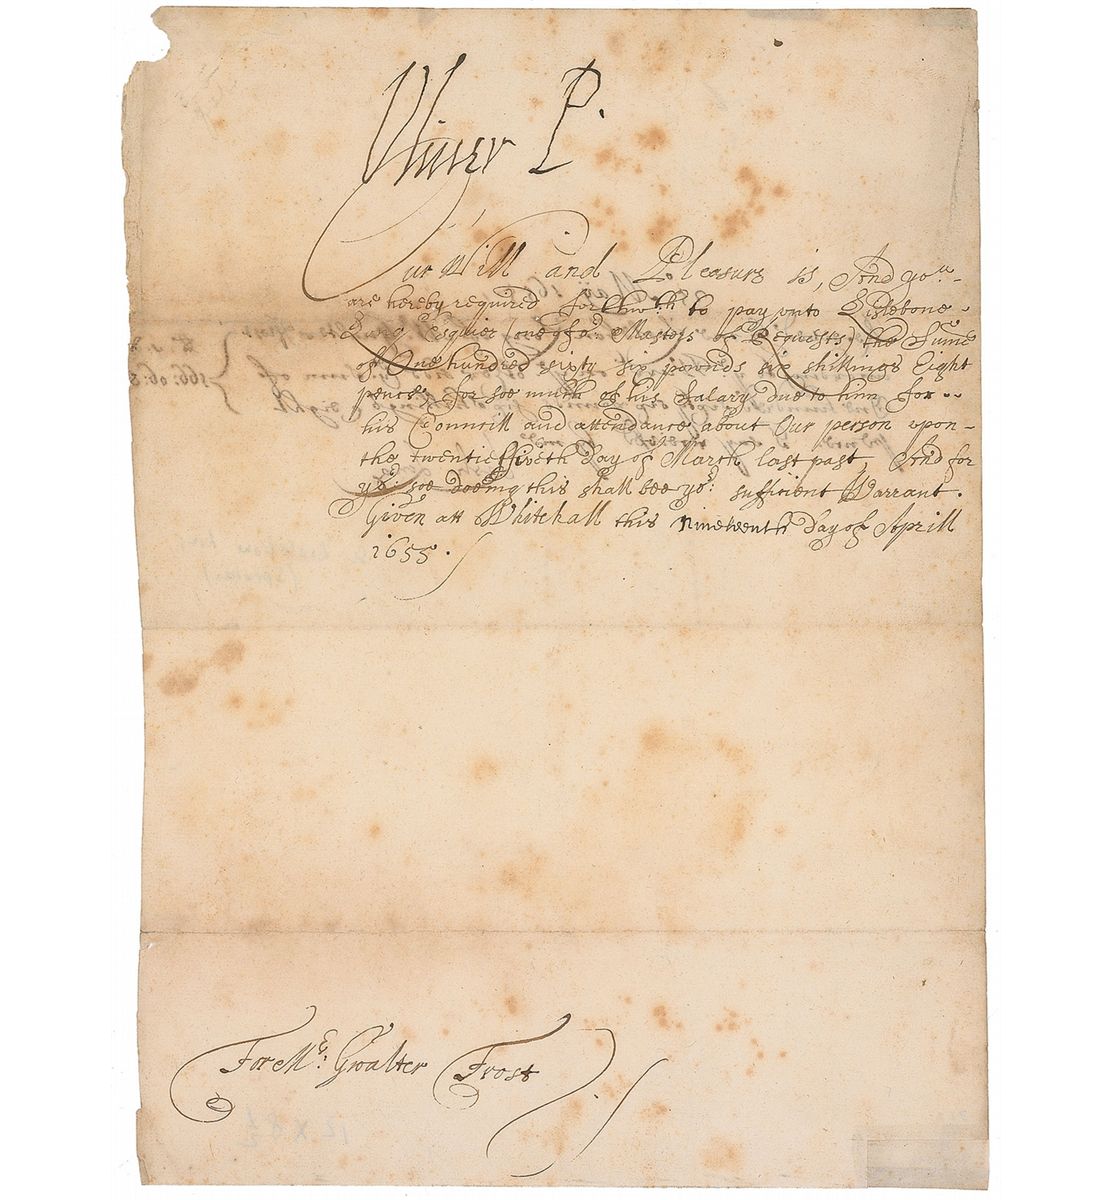 Oliver P.
Our Will and Pleasure is, And you
are hereby required forthwth to pay unto Lislebone
Long Esquier (one of or Masters of Requests) the Sume
of One hundred sixty six pownds six shillings Eight
pence, for soe much of his Salary due to him for
his Councill and attendance about Our person upon
the twentie fiveth Day of March last past, And for
yor: soe doeing this shall bee yor: sufficient Warrant.
Given att Whitehall this Nineteenth Day of Aprill
1655.
For Mr: Gwalter Frost
12 X 8½